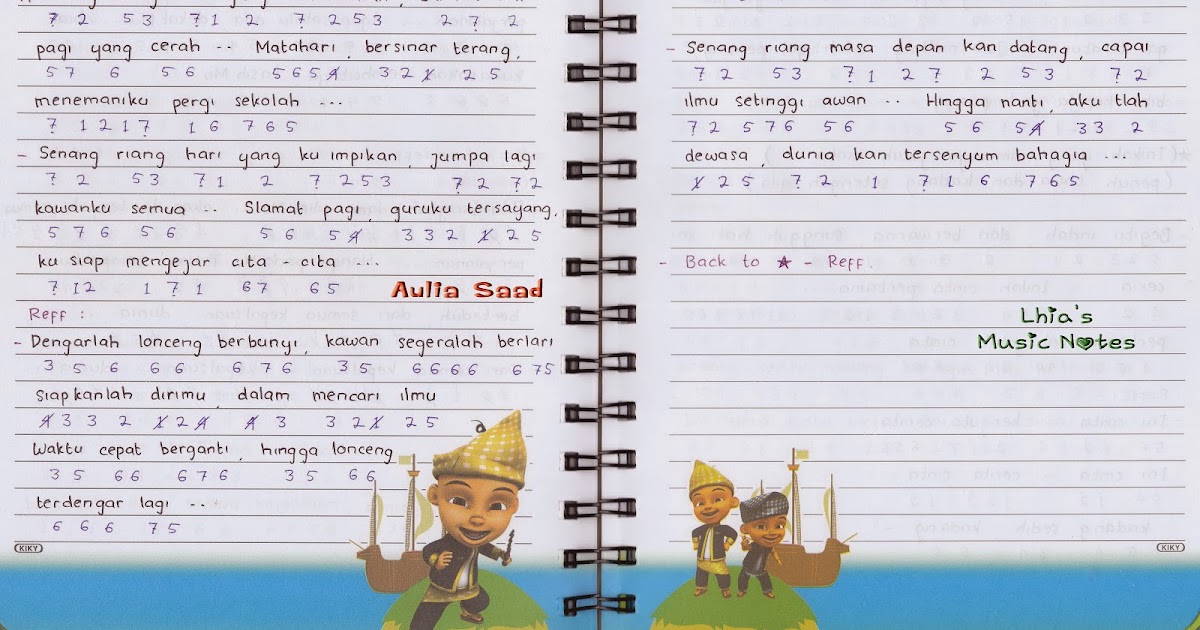 7 2 5 3 7 1 2 7 2 5 3 2 7 2
pagi yang cerah .. Matahari, bersinar terang,
5 7 6 5 6 5 6 5 4 3 2 1 2 5
menemaniku pergi sekolah ...
7 1 2 1 7 1 6 7 6 5
- Senang riang hari yang ku impikan, jumpa lagi
7 2 5 3 7 1 2 7 2 5 3 7 2 7 2
kawanku semua .. Slamat pagi, guruku tersayang,
5 7 6 5 6 5 6 5 4 3 3 2 1 2 5
ku siap mengejar cita - cita ...
7 1 2 1 7 1 6 7 6 5
Aulia Saad
Reff :
- Dengarlah lonceng berbunyi, kawan segeralah berlari
3 5 6 6 6 6 7 6 3 5 6 6 6 6 6 7 5
siapkanlah dirimu, dalam mencari ilmu
4 3 3 2 1 2 4 4 3 3 2 1 2 5
Waktu cepat berganti, hingga lonceng
3 5 6 6 6 7 6 3 5 6 6
terdengar lagi ..
6 6 6 7 5
KIKY
- Senang riang masa depan kan datang, capai
7 2 5 3 7 1 2 7 2 5 3 7 2
ilmu setinggi awan .. Hingga nanti, aku tlah
7 2 5 7 6 5 6 5 6 5 4 3 3 2
dewasa, dunia kan tersenyum bahagia ...
1 2 5 7 2 1 7 1 6 7 6 5
- Back to ★ - Reff.
Lhia's
Music Notes
KIKY